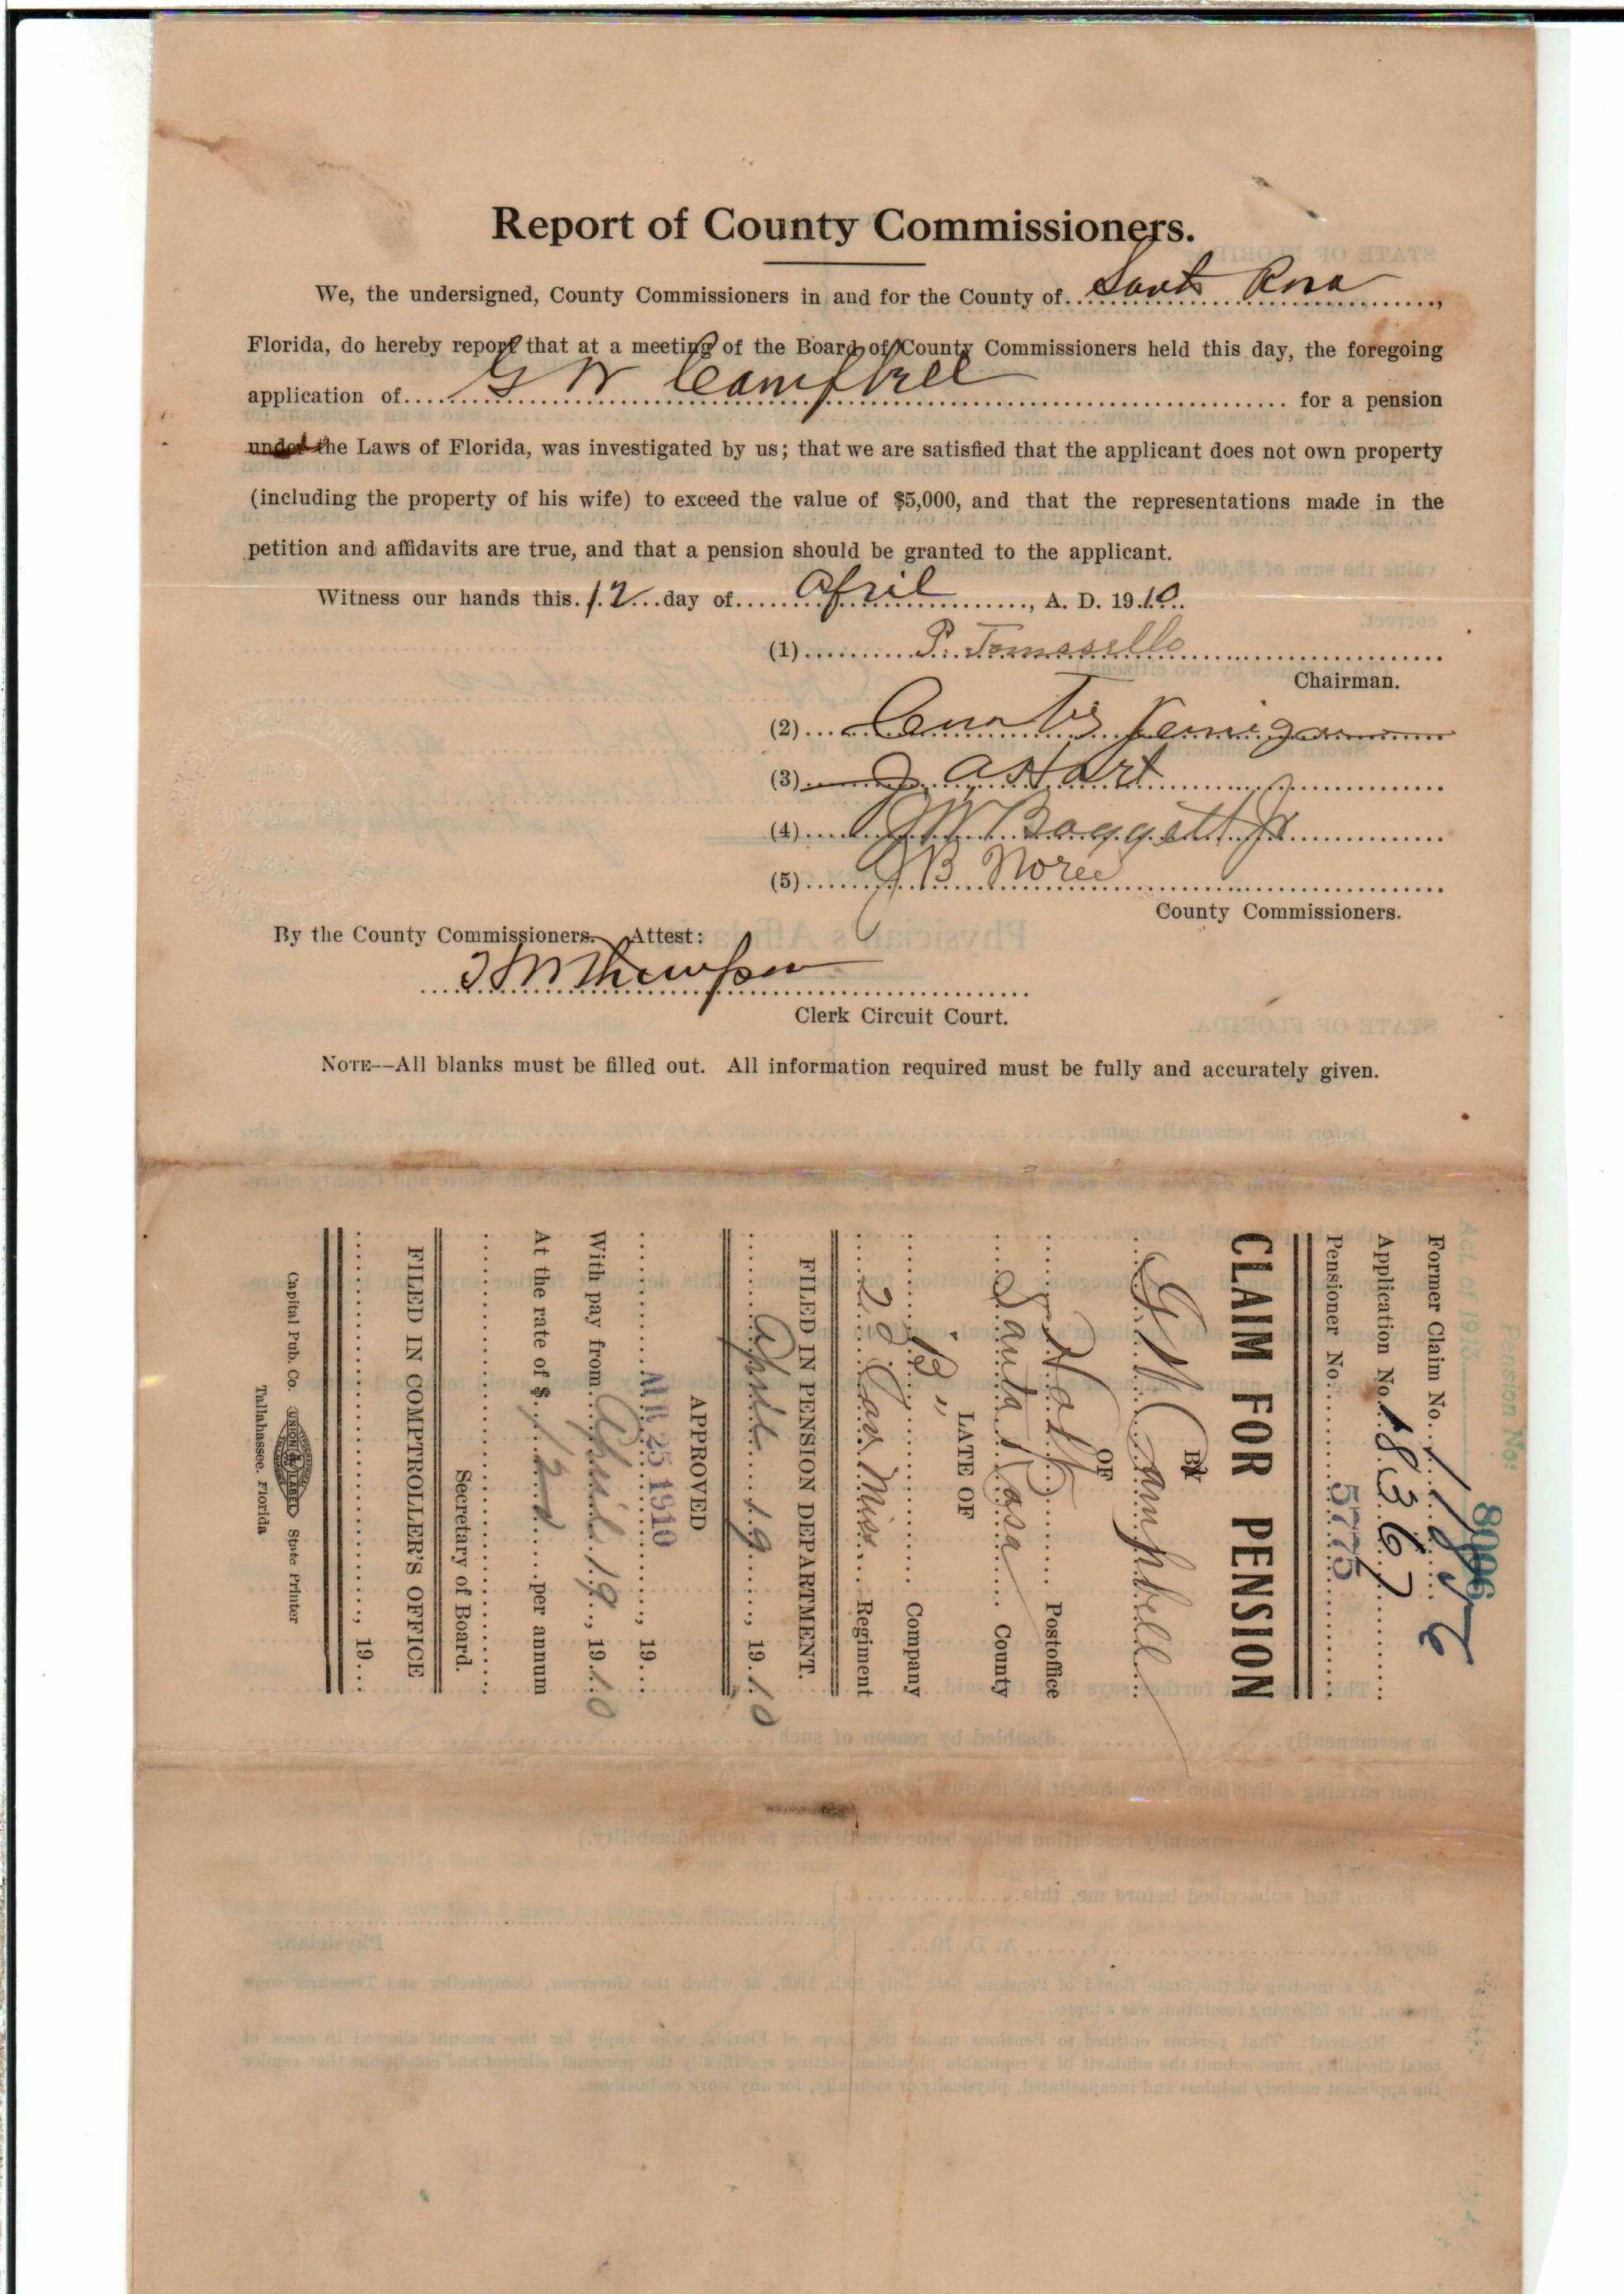 Report of County Commissioners.
We, the undersigned, County Commissioners in and for the County of Santa Rosa,
Florida, do hereby report that at a meeting of the Board of County Commissioners held this day, the foregoing
application of G W Campbell for a pension
under the Laws of Florida, was investigated by us; that we are satisfied that the applicant does not own property
(including the property of his wife) to exceed the value of $5,000, and that the representations made in the
petition and affidavits are true, and that a pension should be granted to the applicant.
Witness our hands this 12 day of April, A. D. 1910.
(1) P. Tomasello
Chairman.
(2) Curtis Jernigan
(3) J A Hart
(4) J W Baggett Jr
(5) J B
County Commissioners.
By the County Commissioners. Attest:
Thompson
Clerk Circuit Court.
NOTE--All blanks must be filled out. All information required must be fully and accurately given.
Act of 1913 Pension No: 8006
Former Claim No.
Application No. 18367
Pensioner No. 5775
CLAIM FOR PENSION
BY
G W Campbell
OF
Holt Postoffice
Santa Rosa County
LATE OF
"B" Company
2d Cav Miss Regiment
FILED IN PENSION DEPARTMENT.
April 19, 1910
APPROVED
APR 25 1910, 19
With pay from April 19, 1910
At the rate of $ 120 per annum
Secretary of Board.
FILED IN COMPTROLLER'S OFFICE
, 19
Capital Pub. Co. UNION LABEL State Printer
Tallahassee, Florida